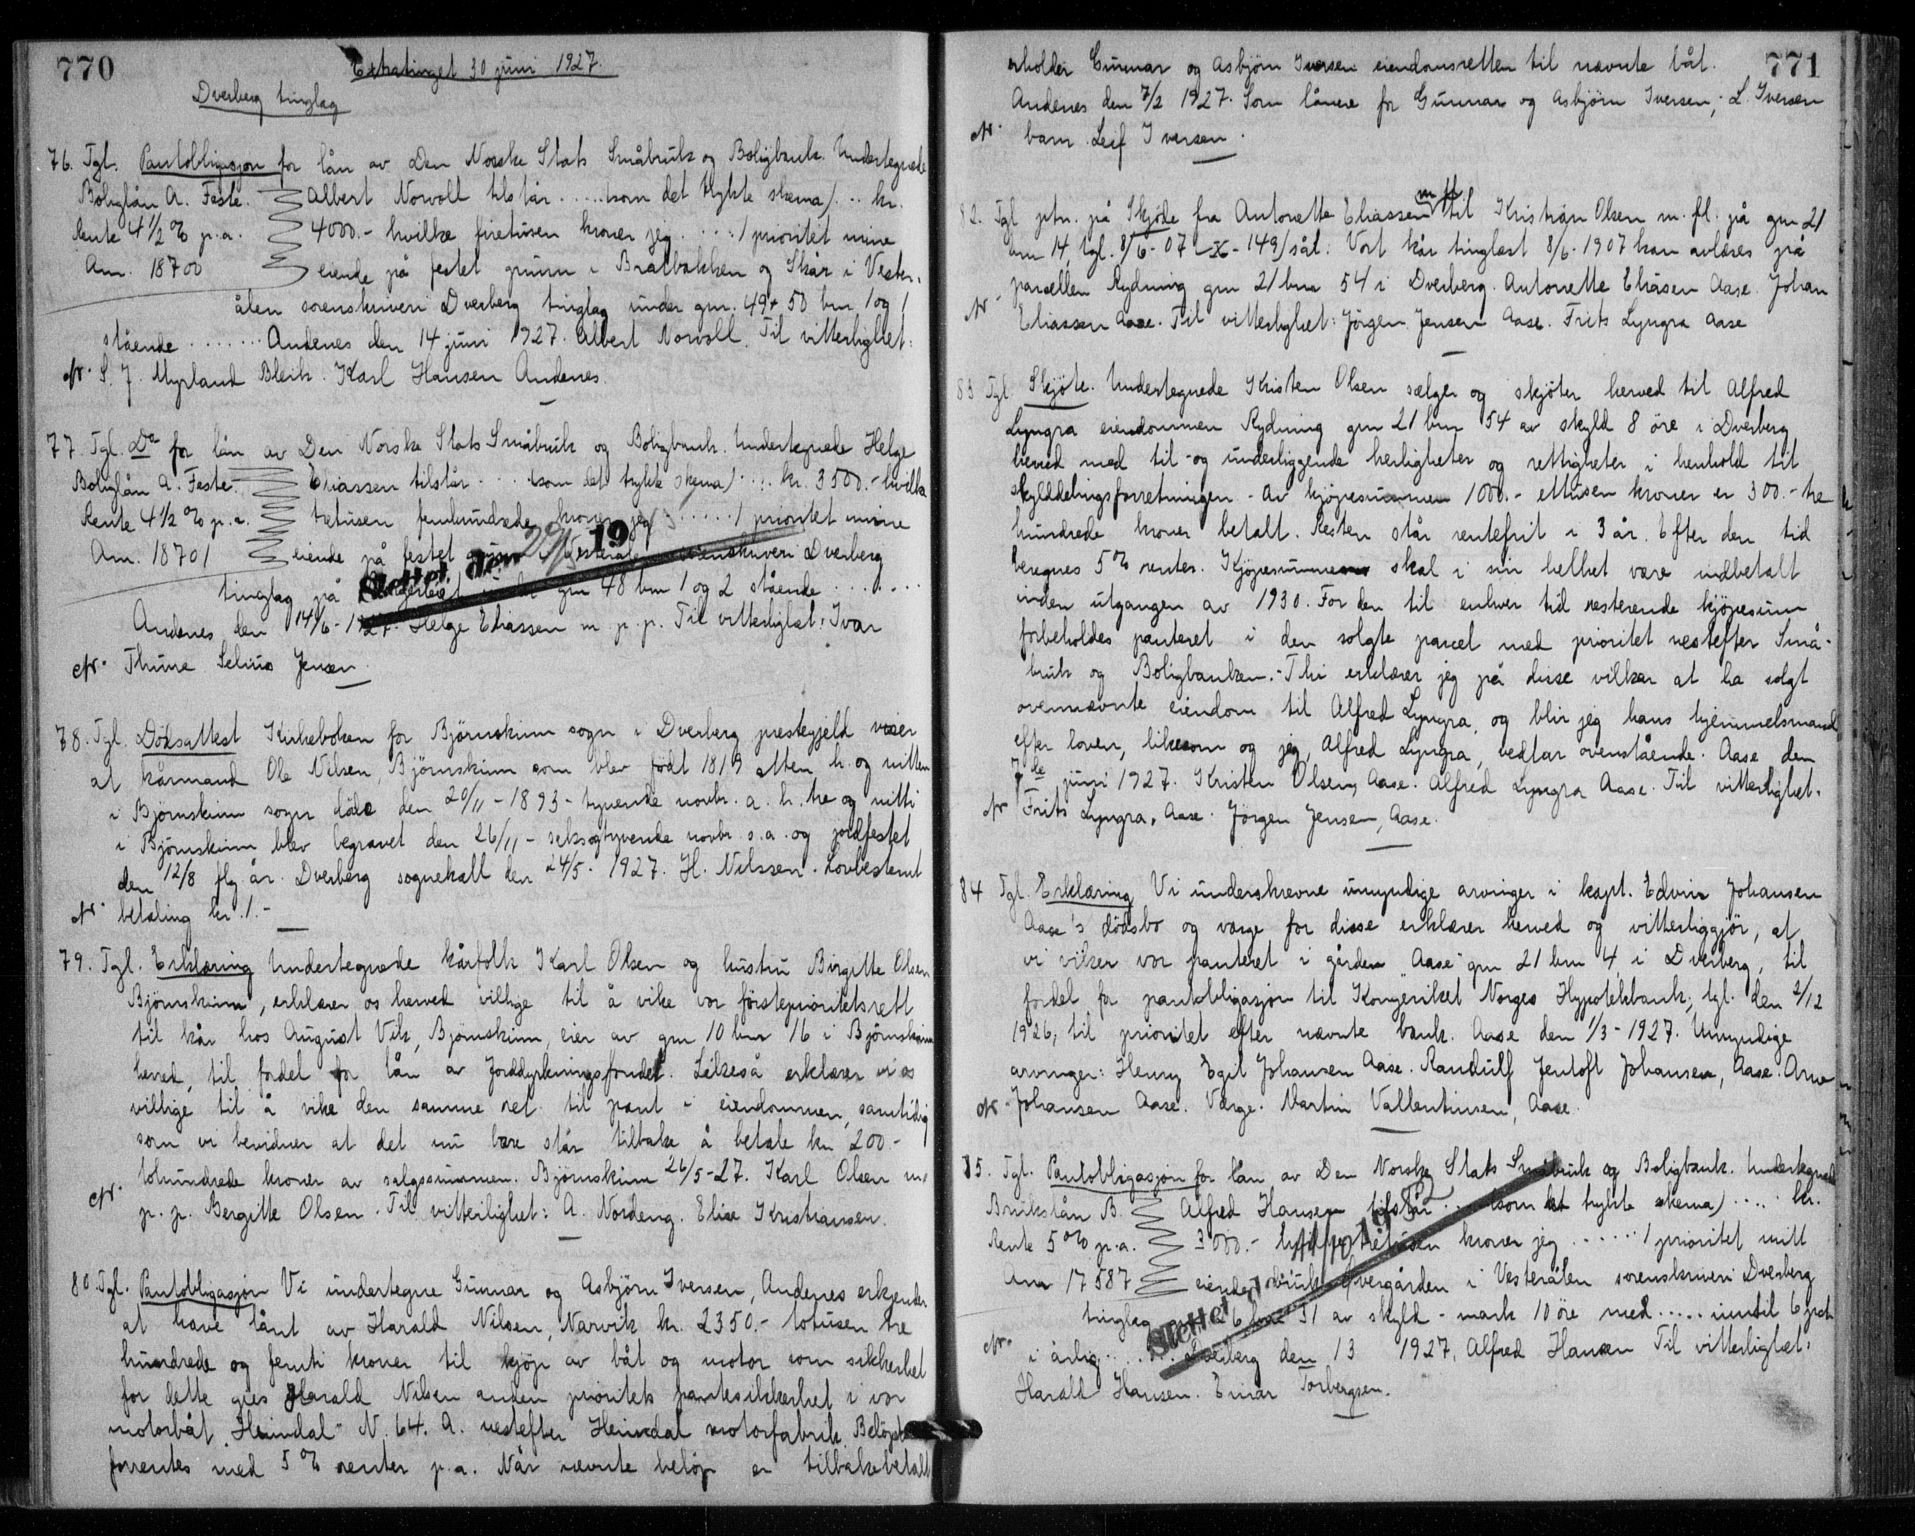 770
Extratinget 30 juni 1927.
Dverberg tinglag
76. Tgl. Pantobligasjon for lån av Den Norske Stats Småbruk og Boligbank. Undertegnede
Boliglån A. Feste. Albert Norvoll tilstår ..... (som det trykte skema) ... kr.
Rente 4 1/2 % p.a. 4000.- hvilke firetusen kroner jeg ..... 1 prioritet mine
Am. 18700 eiende på festet grunn i Bratbakken og Skår i Vester-
ålen sorenskriveri Dverberg tinglag under gnr. 49 + 50 bnr 1 og 1
stående ........ Andenes den 14 juni 1927. Albert Norvoll. Til vitterlighet:
S. J. Myrland Bleik. Karl Hansen Andenes.
77. Tgl. Do for lån av Den Norske Stats Småbruk og Boligbank. Undertegnede Helge
Boliglån A. Feste. Eliassen tilstår .... (som det trykte skema) .... kr. 3500.- hvilke
Rente 4 1/2 % p.a. tretusen femhundrede kroner jeg ...... 1 prioritet mine
Am. 18701 eiende på festet grunn i Vesterålen sorenskriveri Dverberg
Slettet den 19
tinglag på gnr 48 bnr 1 og 2 stående .......
Andenes den 14/6-1927. Helge Eliassen m. p. p. Til vitterlighet: Ivar
Thune Selius Jensen.
78. Tgl. Dødsattest Kirkeboken for Bjørnskinn sogn i Dverberg prestegjeld viser
at kårmand Ole Nilsen Bjørnskinn som blev født 1819 atten h. og nitten
i Bjørnskinn sogn døde den 20/11-1893- tyvende novbr. a. h. tre og nitti
i Bjørnskinn blev begravet den 26/11- seksogtyvende novbr. s.a. og jordfestet
den 12/8 flg år. Dverberg sognekall den 24/5-1927. H. Nilssen. Lovbestemt
betaling kr. 1.-
79. Tgl. Erklæring Undertegnede kårfolk Karl Olsen og hustru Birgitte Olsen
Bjørnskinn, erklærer os herved villige til å vike vor førsteprioritetsrett
til kår hos August Vik, Bjørnskinn, eier av gnr 10 bnr 16 i Bjørnskinn
herred, til fordel for lån av Jorddyrkningsfondet. Likeså erklærer vi os
villige til å vike den samme ret til pant i eiendommen, samtidig
som vi bevidner at det nu bare står tilbake å betale kr. 200.-
tohundrede kroner av salgssummen. Bjørnskinn 26/5-27. Karl Olsen m.
p. p. Bergitte Olsen. Til vitterlighet: A. Nordeng. Elise Kristiansen.
80. Tgl. Pantobligasjon Vi undertegne Gunnar og Asbjørn Iversen, Andenes erkjender
at have lånt av Harald Nilsen, Narvik kr. 2350.- totusen tre
hundrede og femti kroner til kjøp av båt og motor som sikkerhet
for dette gies Harald Nilsen anden prioritets pantesikkerhet i vor
motorbåt "Heindal" N. 64. A. nestefter Heimdal motorfabrik. Beløpet
forrentes med 5 % renter p.a. Når nævnte beløp er tilbakebetalt
771
erholder Gunnar og Asbjørn Iversen eiendomsretten til nævnte båt.
Andenes den 7/2 1927. Som lånere for Gunnar og Asbjørn Iversen; L. Iversen
barn Leif Iversen.
82. Tgl ptn. på Skjøde fra Antonette Eliassen m fl til Kristian Olsen m. fl. på gnr 21
bnr 14, tgl. 8/6-07 -X- 149/sål: Vort kår tinglæst 8/6-1907 kan avløses på
parcellen Rydning gnr 21 bnr 54 i Dverberg. Antonette Eliasen Aase. Johan
Eliassen Aase. Til vitterlighet: Jørgen Jensen Aase. Frits Lyngra Aase
83 Tgl. Skjøte. Undertegnede Kristen Olsen sælger og skjøter herved til Alfred
Lyngra eiendommen Rydning gnr 21 bnr 54 av skyld 8 øre i Dverberg
herred med til- og underliggende herligheter og rettigheter i henhold til
skylddelingsforretningen - Av kjøpesummen 1000.- ettusen kroner er 300.- tre
hundrede kroner betalt. Resten står rentefrit i 3 år. Efter den tid
beregnes 5 % renter. Kjøpesummen skal i sin helhet være indbetalt
inden utgangen av 1930. For den til enhver tid resterende kjøpesum
forbeholdes panteret i den solgte parcel med prioritet nestefter Små-
bruk og Boligbanken.- Thi erklærer jeg på disse vilkår at ha solgt
ovennævnte eiendom til Alfred Lyngra, og blir jeg hans hjemmelsmand
efter loven, likesom og jeg, Alfred Lyngra, vedtar ovenstående. Aase den
7de juni 1927. Kristen Olsen, Aase. Alfred Lyngra Aase. Til vitterlighet.
Frits Lyngra, Aase. Jørgen Jensen, Aase.
84 Tgl. Erklæring Vi underskrevne umyndige arvinger i kapt. Edvin Johansen
Aase's dødsbo og værge for disse erklærer herved og vitterliggjør, at
vi viker vor panteret i gården "Aase" gnr 21 bnr 4 i Dverberg, til
fordel for pantobligasjon til Kongeriket Norges Hypotekbank, tgl. den 2/12
1926, til prioritet efter nævnte bank. Aase den 1/3-1927. Umyndige
arvinger: Henry Egil Johansen Aase. Randulf Jentoft Johansen, Aase. Arne
Johansen Aase. Værge. Martin Vallentinsen, Aase.
85. Tgl. Pantobligasjon for lån av Den Norske Stats Småbruk og Boligbank. Undertegnede
Brukslån B. Alfred Hansen tilstår ... (som det trykte skema) .... kr.
Rente 5 % p.a. 3000.- hvilke tretusen kroner jeg ...... 1 prioritet mitt
Am 17587 eiende bruk Øvergården i Vesterålen sorenskriveri Dverberg
Slettet 1952
tinglag 26 bnr 31 av skyld - mark 10 øre med ..... inntil 6 prct
i årlig ...... Dverberg den 13 1927, Alfred Hansen Til vitterlighet.
Harald Hansen. Einar Torbergsen.